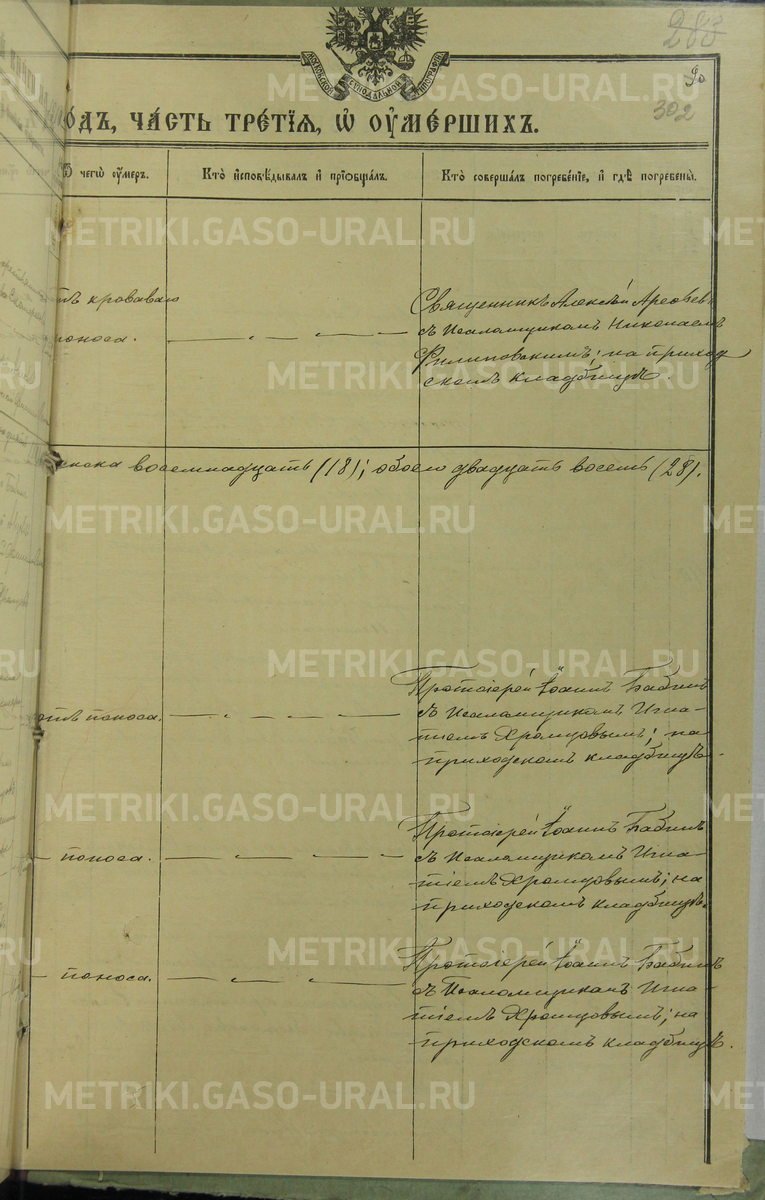 283
90
302
МОСКОВСКОЙ СѴНОДАЛЬНОЙ ТИПОГРАФІИ
ОДЪ, ЧА́СТЬ ТРЕ́ТІЯ, Ѡ ОУМЕ́РШИХЪ.
Ѿ чегѡ̀ оу́меръ.
Кто̀ и҆сповѣ́дывалъ и҆ прїѻбща́лъ.
Кто̀ соверша́лъ погребе́нїе, и҆ гдѣ̀ погребены̀.
отъ кроваваго
поноса.
Священникъ Алексѣй
съ Псаломщикомъ Николаемъ
Филиповскимъ; на приход
скомъ кладбищѣ.
женска восемнадцать (18); обоего двадцать восемь (28).
отъ поноса.
Протоіерей Іоаннъ Бабинъ
съ Псаломщикомъ Игна-
тіемъ Хромцовымъ; на
приходскомъ кладбищѣ.
— поноса.
Протоіерей Іоаннъ Бабинъ
съ Псаломщикомъ Игна-
тіемъ Хромцовымъ; на
приходскомъ кладбищѣ.
— поноса.
Протоіерей Іоаннъ Бабинъ
съ Псаломщикомъ Игна-
тіемъ Хромцовымъ; на
приходскомъ кладбищѣ.
METRIKI.GASO-URAL.RU